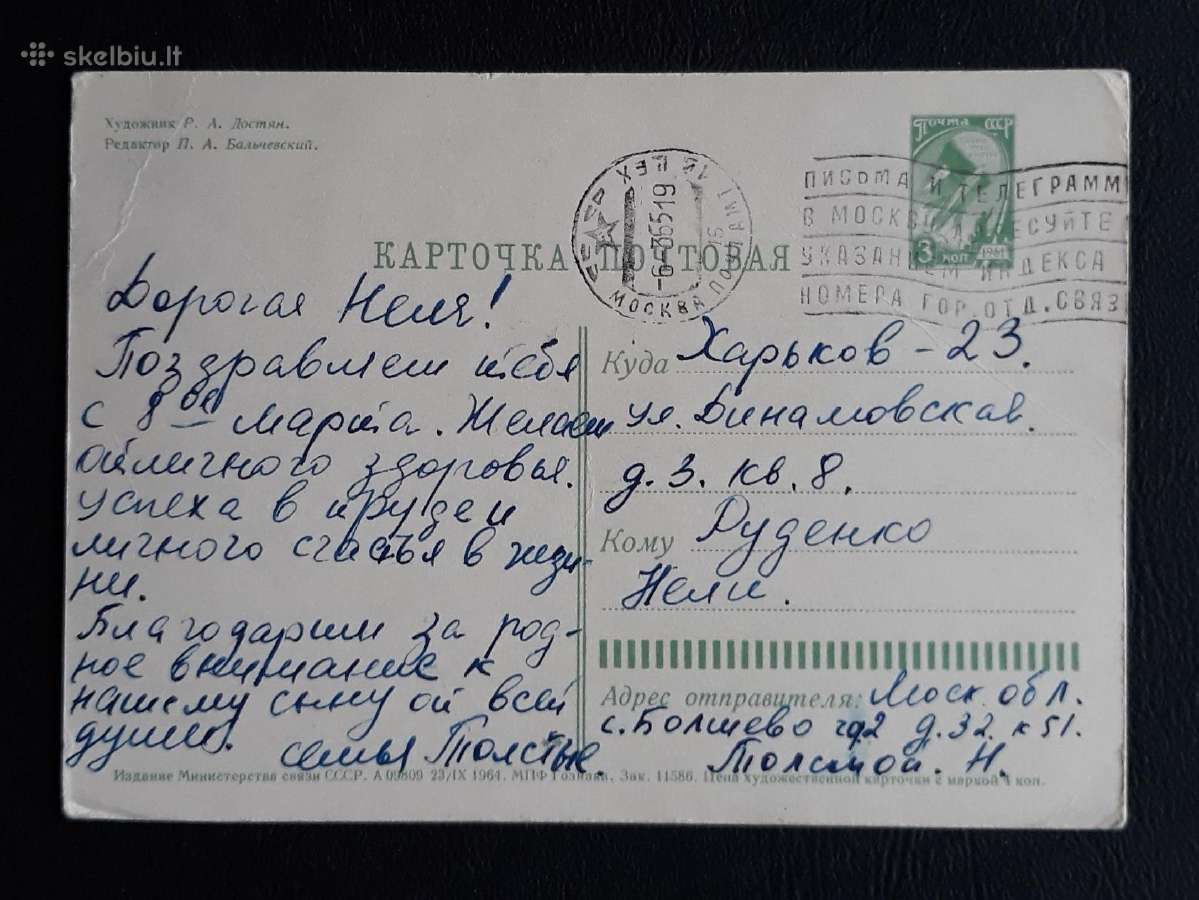 skelbiu.lt
Художник Р. А. Достян.
Редактор П. А. Бальчевский.
ПОЧТА СССР
3 КОП 1961
СССР
14Й ЦЕХ
-6-36519
МОСКВА ПОЧТАМТ
ПИСЬМА И ТЕЛЕГРАММ
В МОСКВ ЕСУЙТЕ
УКАЗАНИЕМ ИНДЕКСА
НОМЕРА ГОР.ОТД.СВЯЗ
КАРТОЧКА ПОЧТОВАЯ
Дорогая Неля!
Поздравляем тебя
с 8ое марта. Желаем
отличного здоровья.
успеха в труде и
личного счастья в жиз-
ни.
Благодарим за род-
ное внимание к
нашему сыну от всей
души.
семья Толстые.
Куда Харьков-23.
ул. Динамовская
д.3. кв.8.
Кому Руденко
Нели.
Адрес отправителя: Моск. обл.
с. Болшево д.32. к 51.
Толстой. Н.
Издание Министерства связи СССР. А 09809 23/IX 1964. МПФ Гознака. Зак. 11586. Цена художественной карточки с маркой 4 коп.